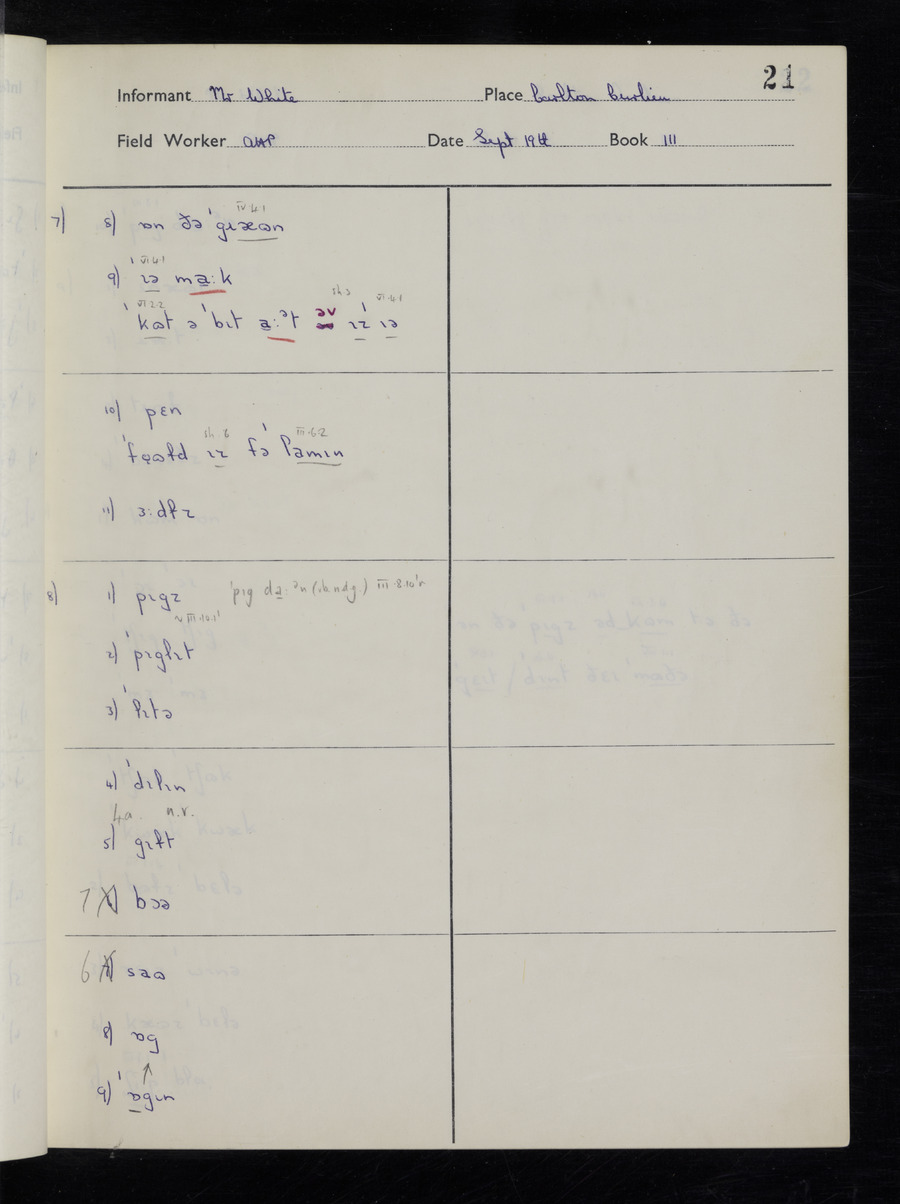 21
Informant Mr White Place Carlton Curlieu
Field Worker Date Sept 19th Book III
IV.4.1
7) 8) ɒn ðə ˈgɪæɷn
VI.4.1
9) ˈɪə ma̱:k
VI.2.2 sh.3 VI.4.1
ˈkɷt ə ˈbɪt a̱:ᵊt əv ˈɪz ɪə
10) pɛn
sh.6 III.6.2
ˈfɷld ɪz fə ˈlamɪn
11) ɜ:dɫz
8) 1) pɪgz ˈpɪg da̱:ᵊn III.8.10ˈr
v III.10.1ˈ
2) ˈpɪglɪt
3) ˈlɪtə
4) ˈdɪlɪn
4a. n.r.
5) gɪɫt
7) bɔə
6) saɷ
8) ɒg
↑
9) ˈɒgɪn